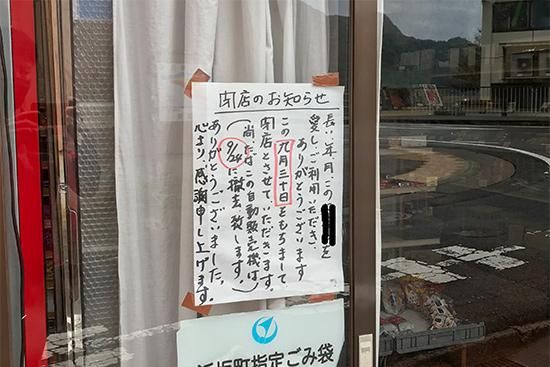 閉店のお知らせ
長い年月この
を
愛し、ご利用いただき、
ありがとうございます
この九月三十日をもちまして
閉店とさせていただきます。
(尚、たばこの自動販売機は
9/24に撤去致します。)
ありがとうございました。
心より、感謝申し上げます。
坂町指定ごみ袋